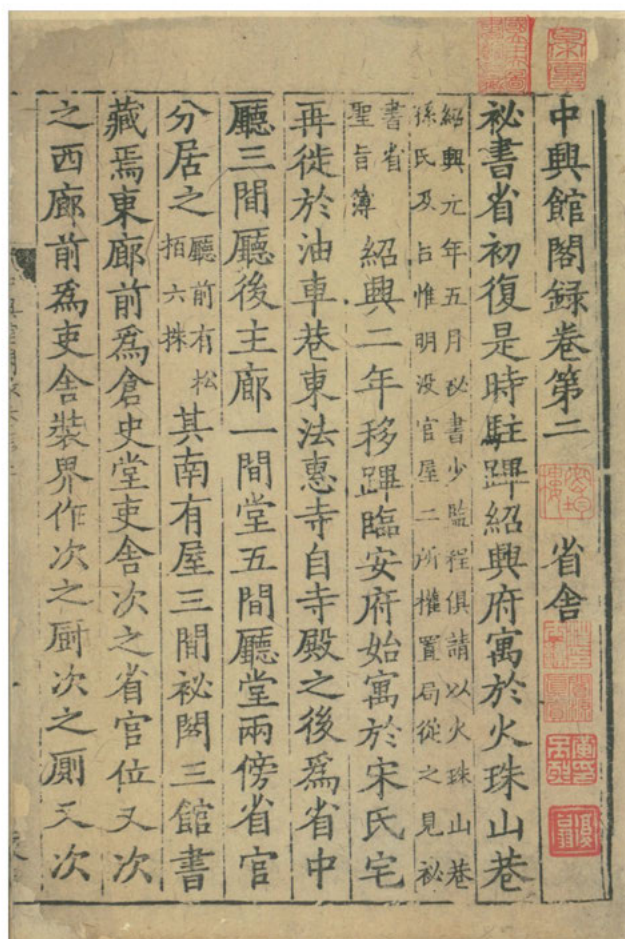 中興館閣録卷第二 省舍
祕書省初復是時駐蹕紹興府寓於火珠山巷
紹興元年五月祕書少監程俱請以火珠山巷
孫氏及吕惟明没官屋二所權置局從之見祕
書省
聖旨簿 紹興二年移蹕臨安府始寓於宋氏宅
再徙於油車巷東法惠寺自寺殿之後爲省中
廳三間廳後主廊一間堂五間廳堂兩傍省官
分居之 廳前有松
栢六株 其南有屋三間祕閣三館書
藏焉東廊前爲倉史堂吏舍次之省官位又次
之西廊前爲吏舍裝界作次之厨次之厠又次